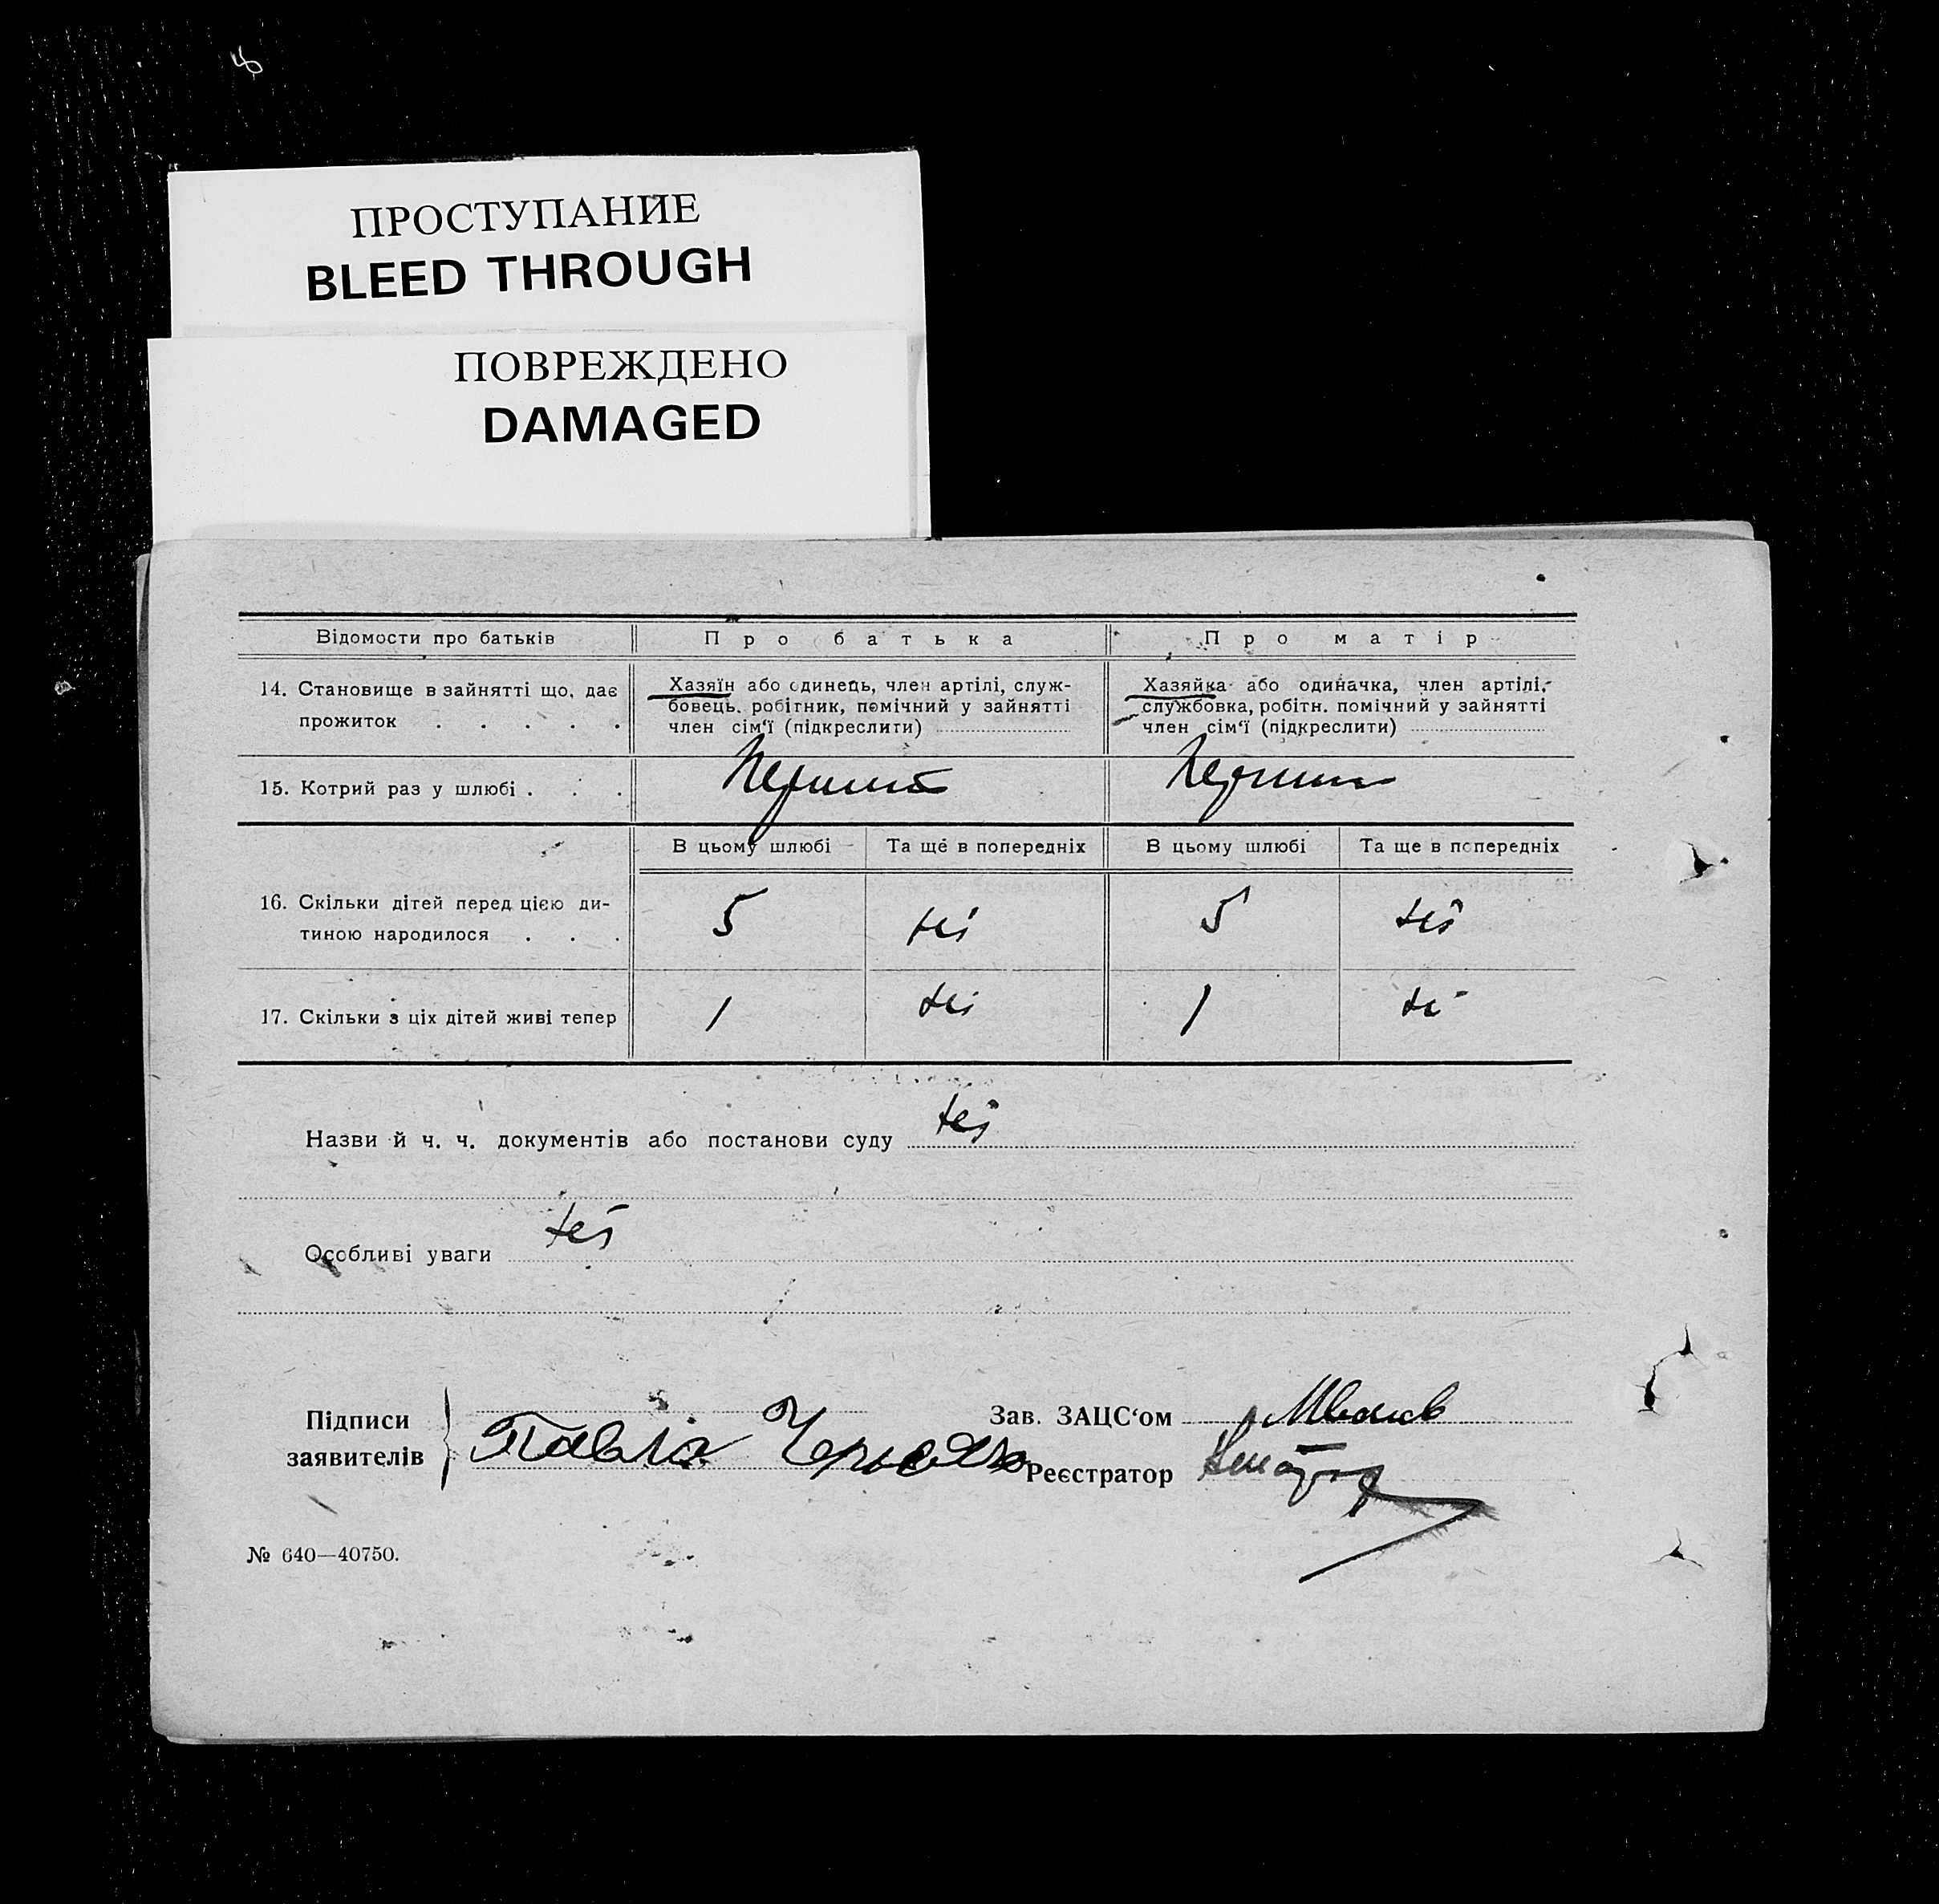 ПРОСТУПАНИЕ
BLEED THROUGH
ПОВРЕЖДЕНО
DAMAGED
Відомости про батьків Про батька Про матір
14. Становище в зайнятті що, дає прожиток . . . . .
Хазяїн або одинець, член артілі, служ-
бовець. робітник, помічний у зайнятті
член сім'ї (підкреслити)
Хазяйка або одиначка, член артілі,
службовка, робітн. помічний у зайнятті
член сім'ї (підкреслити)
15. Котрий раз у шлюбі . . .
В цьому шлюбі Та ще в попередніх В цьому шлюбі Та ще в попередніх
16. Скільки дітей перед цією ди-
тиною народилося . . .
5 5
17. Скільки з ціх дітей живі тепер 1 1
Назви й ч. ч. документів або постанови суду
Особливі уваги
Підписи
заявителів
Павло
Зав. ЗАЦС'ом
Реєстратор
№ 640—40750.